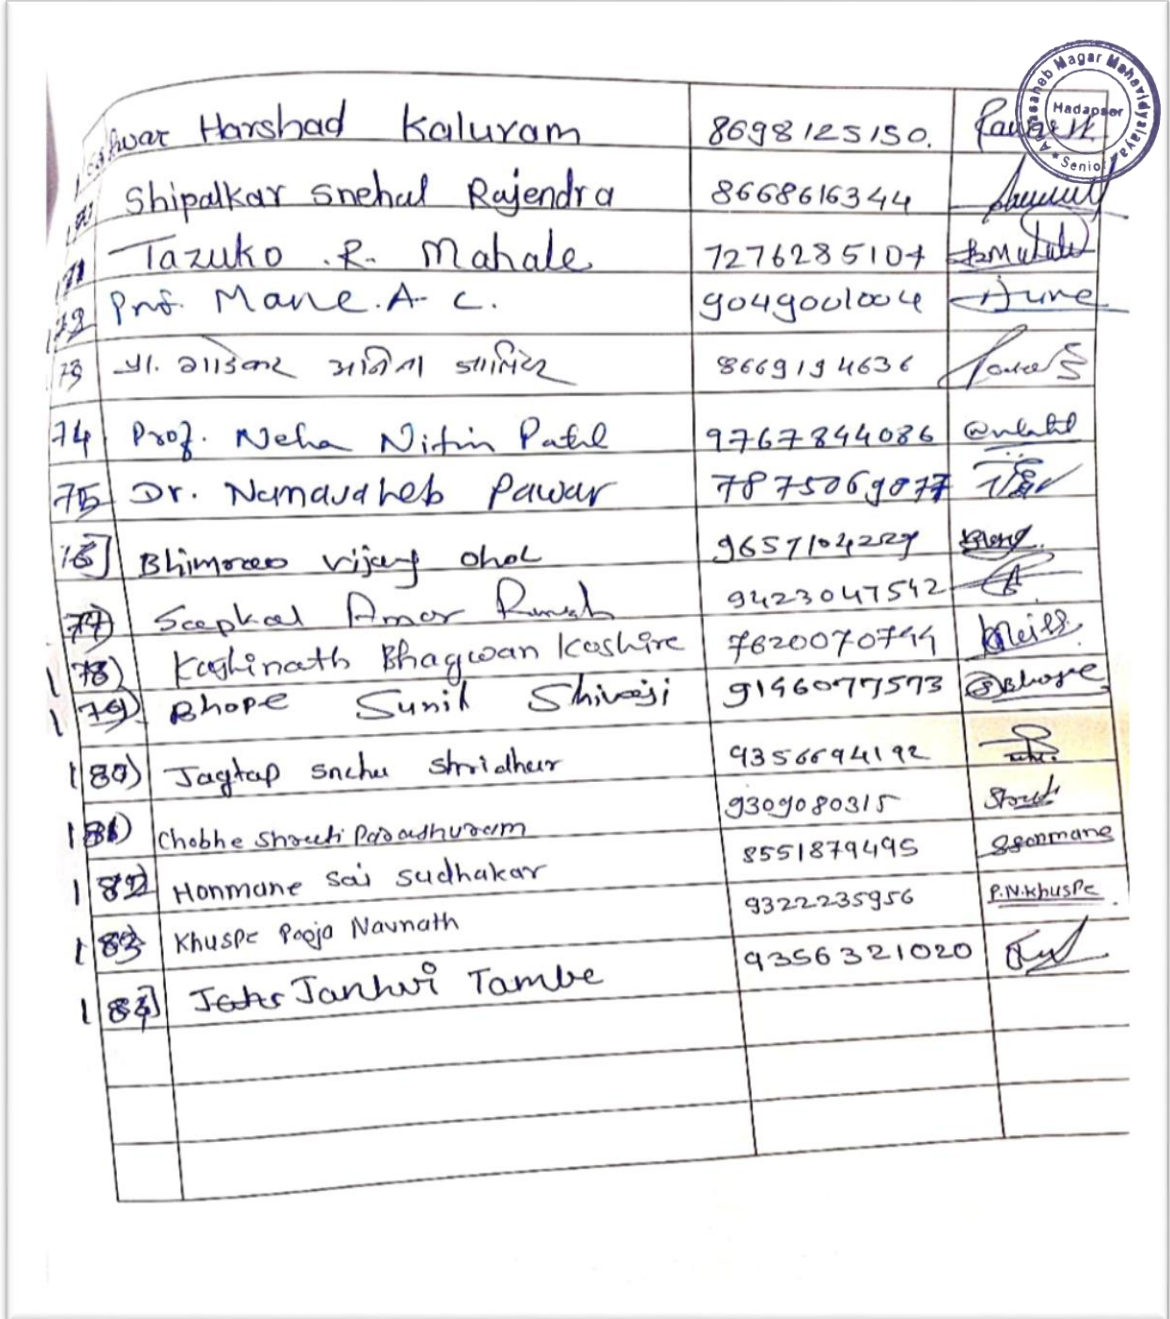 Annasaheb Magar Mahavidyalaya
Hadapser
★ Senior
Pawar Harshad Kaluram 8698125150.
Shipalkar Snehal Rajendra 8668616344
71 Tazuko .R. Mahale 7276285107
172 Prof. Mane. A. C. 9049001004
73 प्रा. 8669194636
74 Prof. Neha Nitin Patil 9767844086
75 Dr. Namavdheb Pawar 7875069077
76] Bhimrao vijay ohol 9657104229
77) Sapkal Amar Ramesh 9423047542
178) Kashinath Bhagwan Kashire 7620070744
179) Bhope Sunil Shivaji 9146077573 Bhope
180) Jagtap sneha shridhar 9356694192
181) Chobhe Shruti Parashuram 9309080315
182) Honmane Sai Sudhakar 8551879495 Sshonmane
183) Khuspe Pooja Navnath 9322235956 P.N.khuspe
184] Janhvi Tambe 9356321020